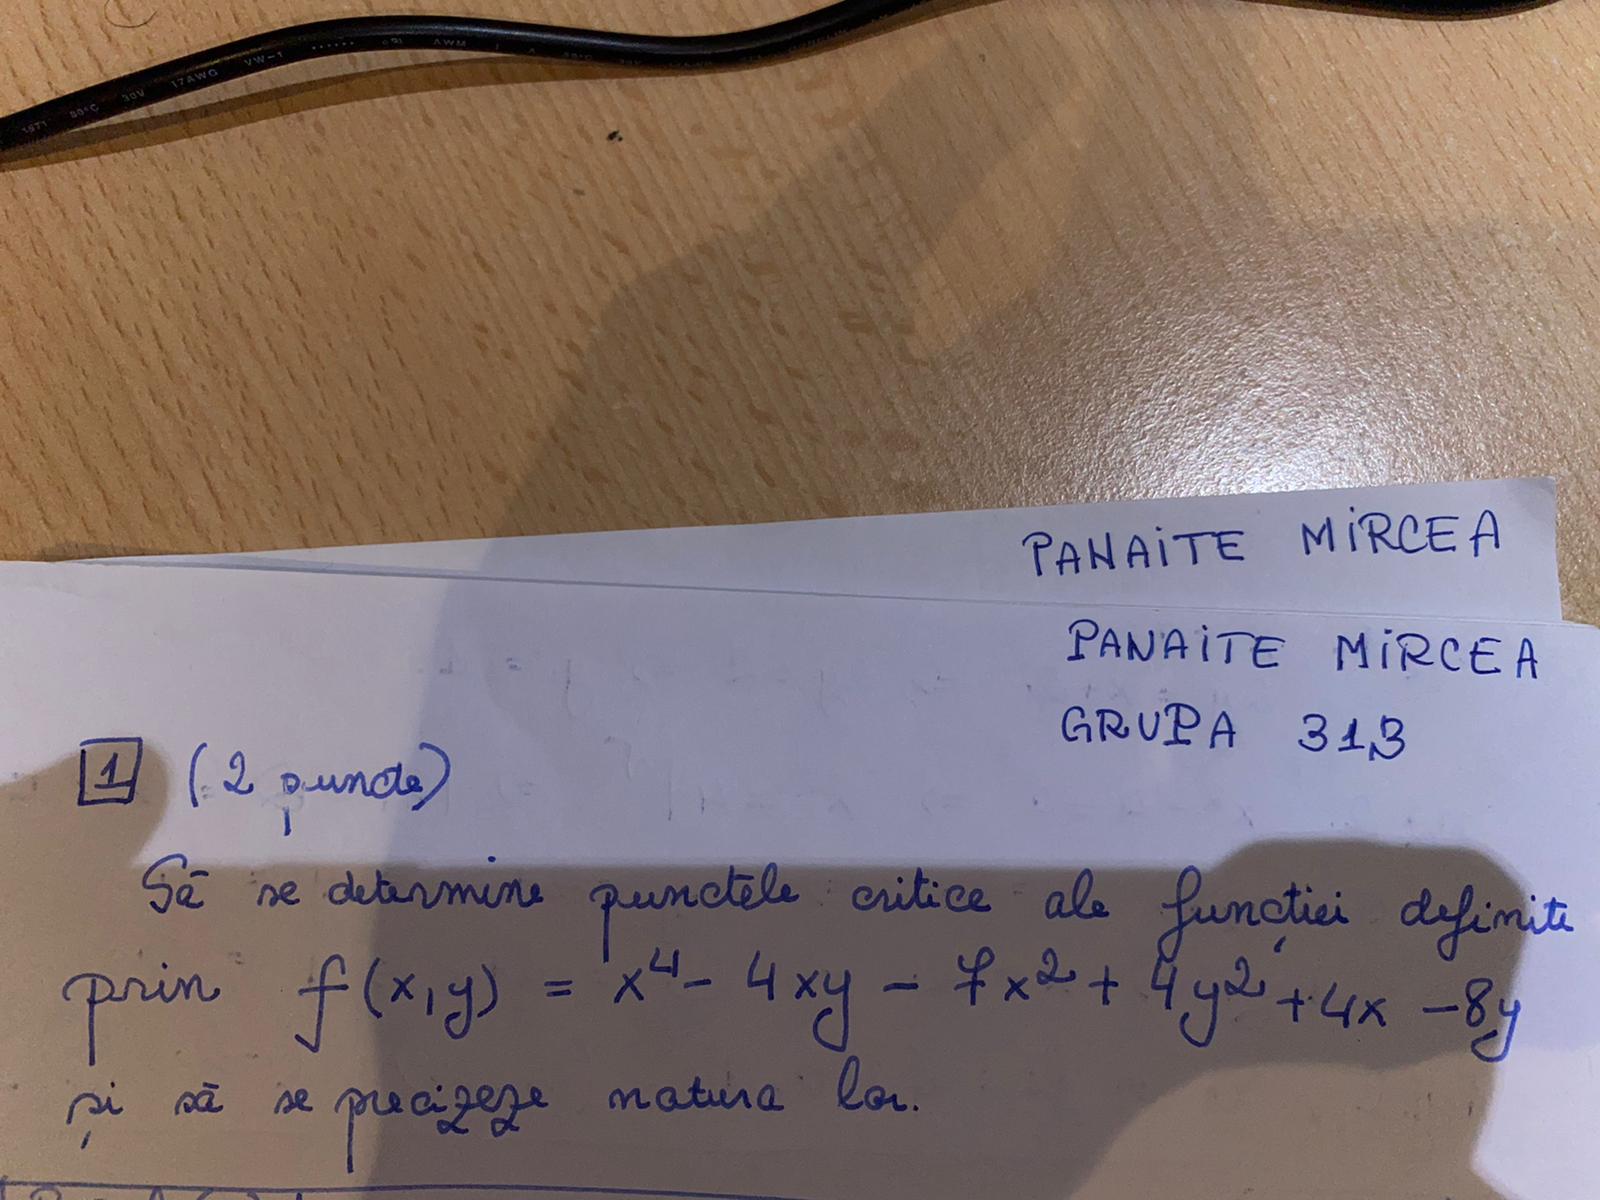 1971 80°C 30V 17AWG VW-1 AWM
PANAITE MIRCEA
PANAITE MIRCEA
GRUPA 313
1 (2 puncte)
Să se determine punctele critice ale funcției definite
prin f(x,y) = x⁴ - 4xy - 7x² + 4y² + 4x - 8y
și să se precizeze natura lor.